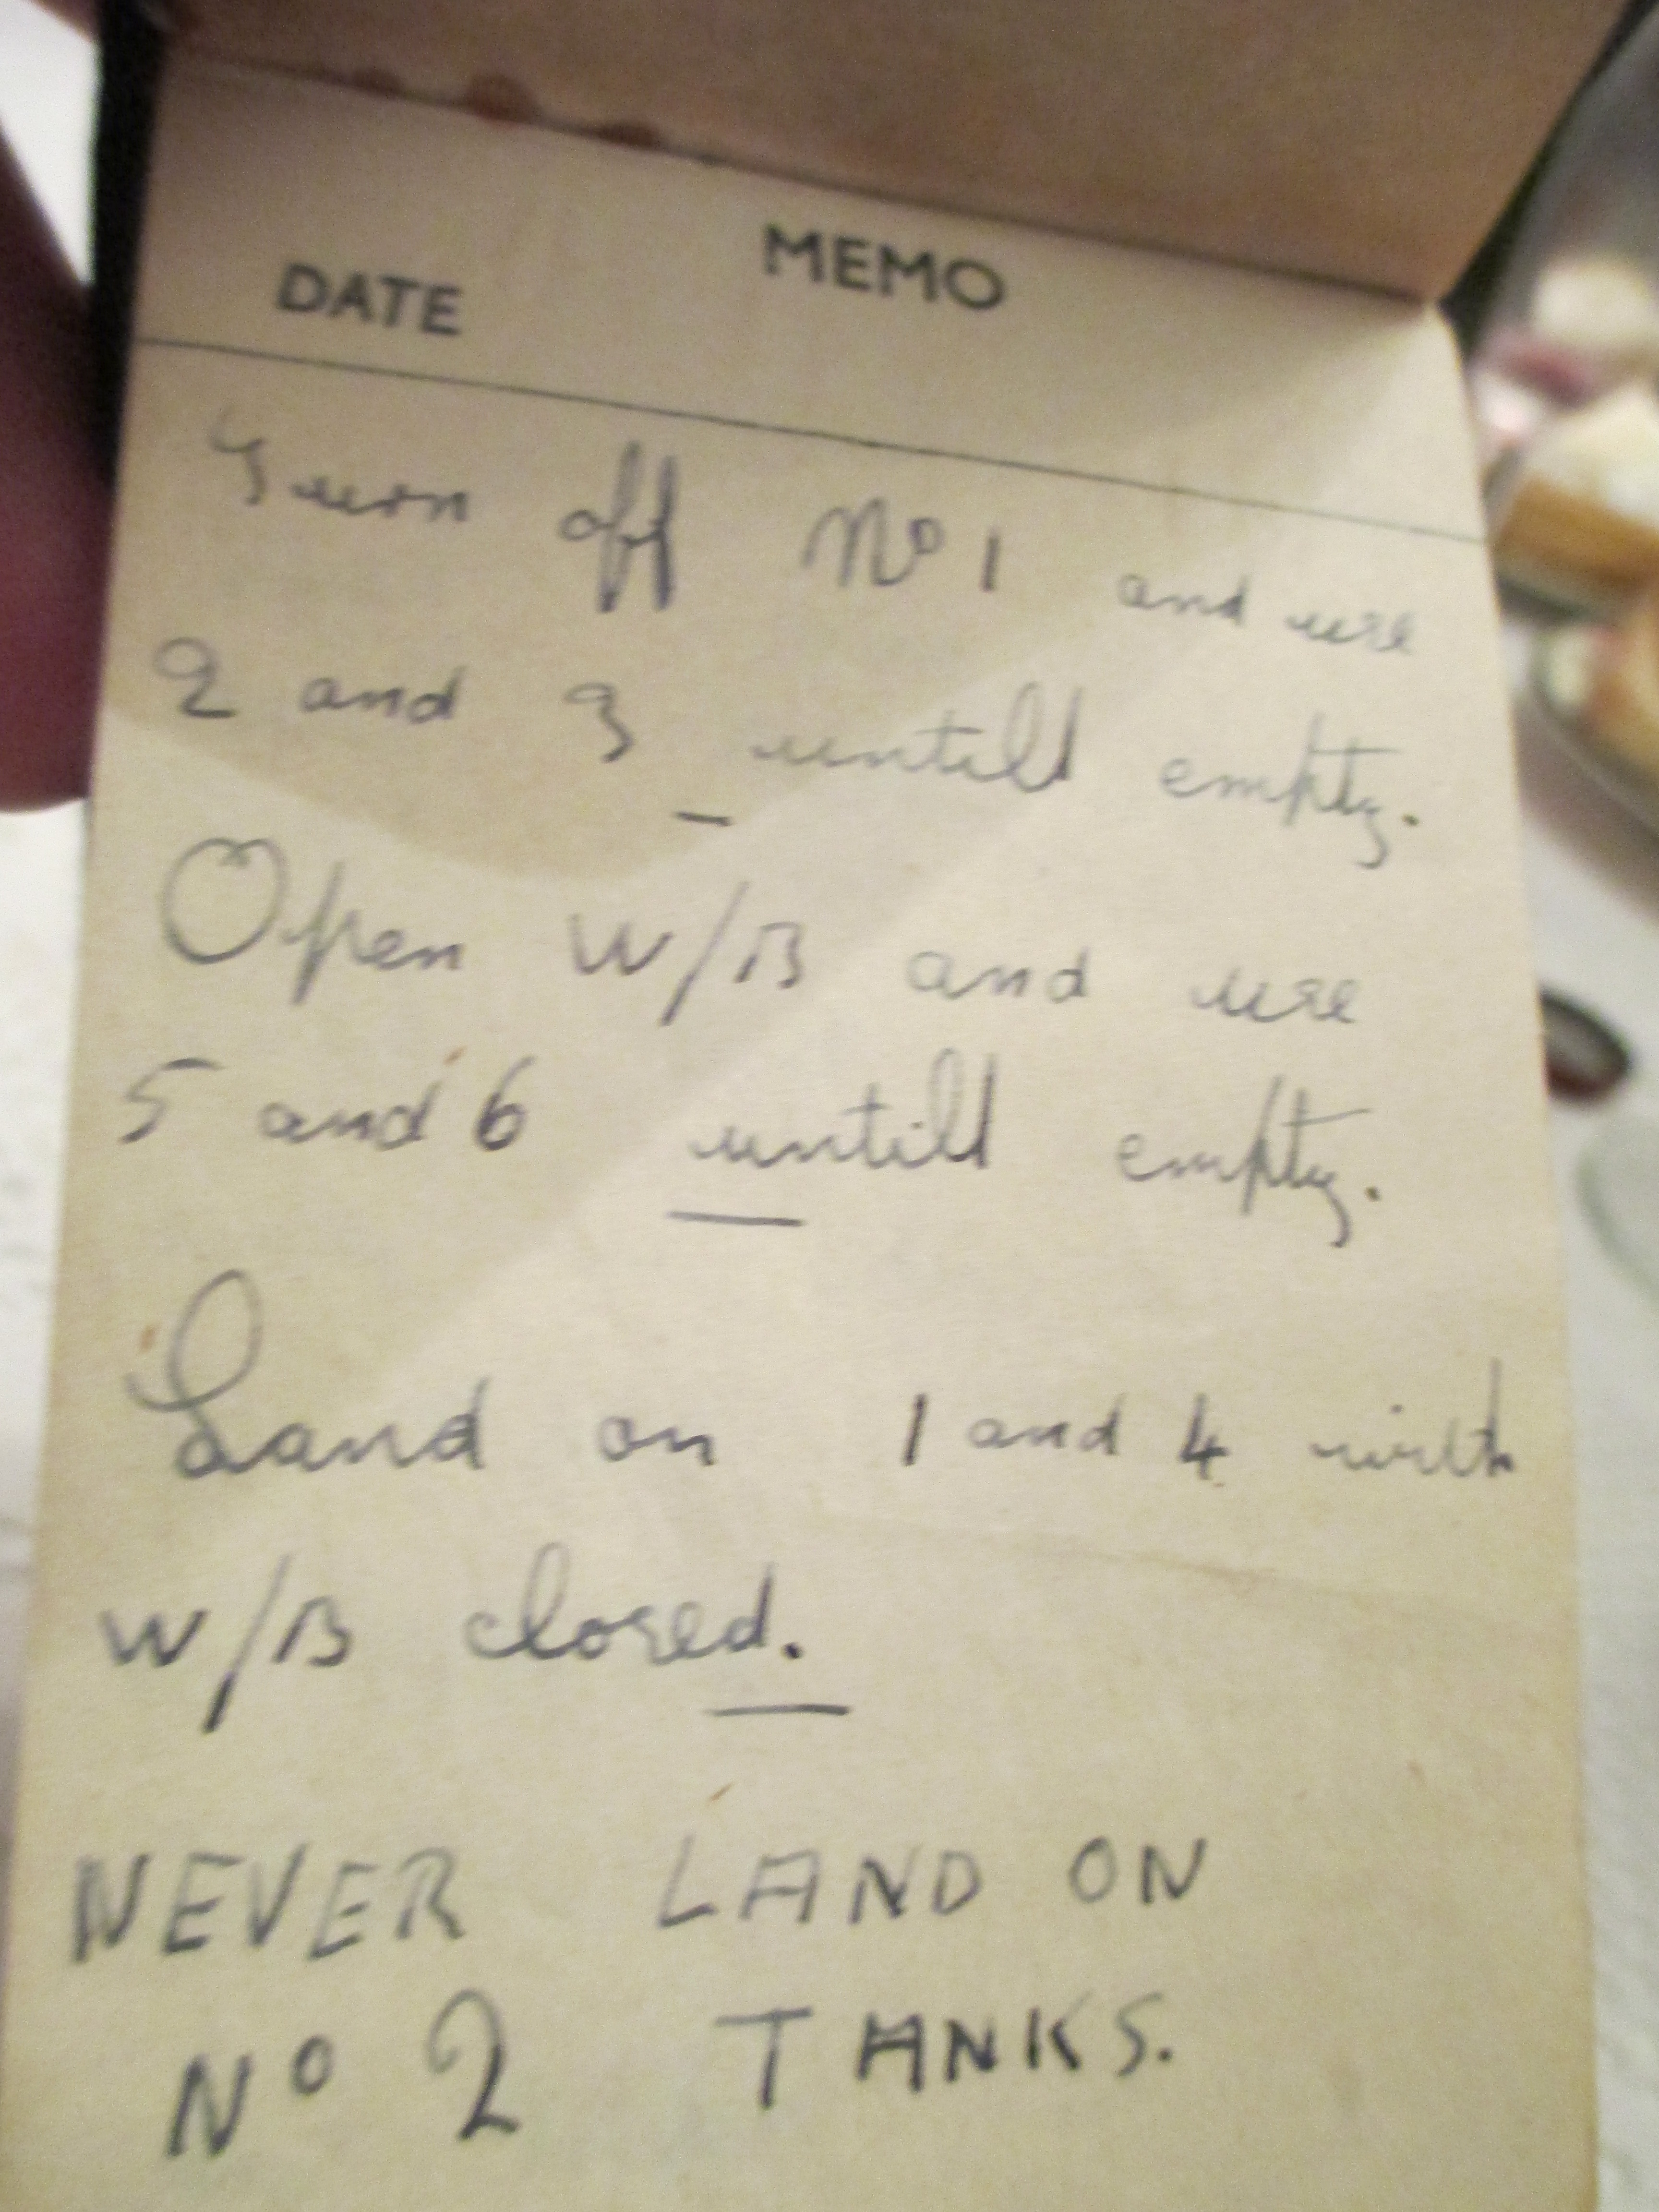 DATE MEMO
Turn off Nº 1 and use
2 and 3 untill empty.
Open W/B and use
5 and 6 untill empty.
Land on 1 and 4 with
W/B closed.
NEVER LAND ON
Nº 2 TANKS.